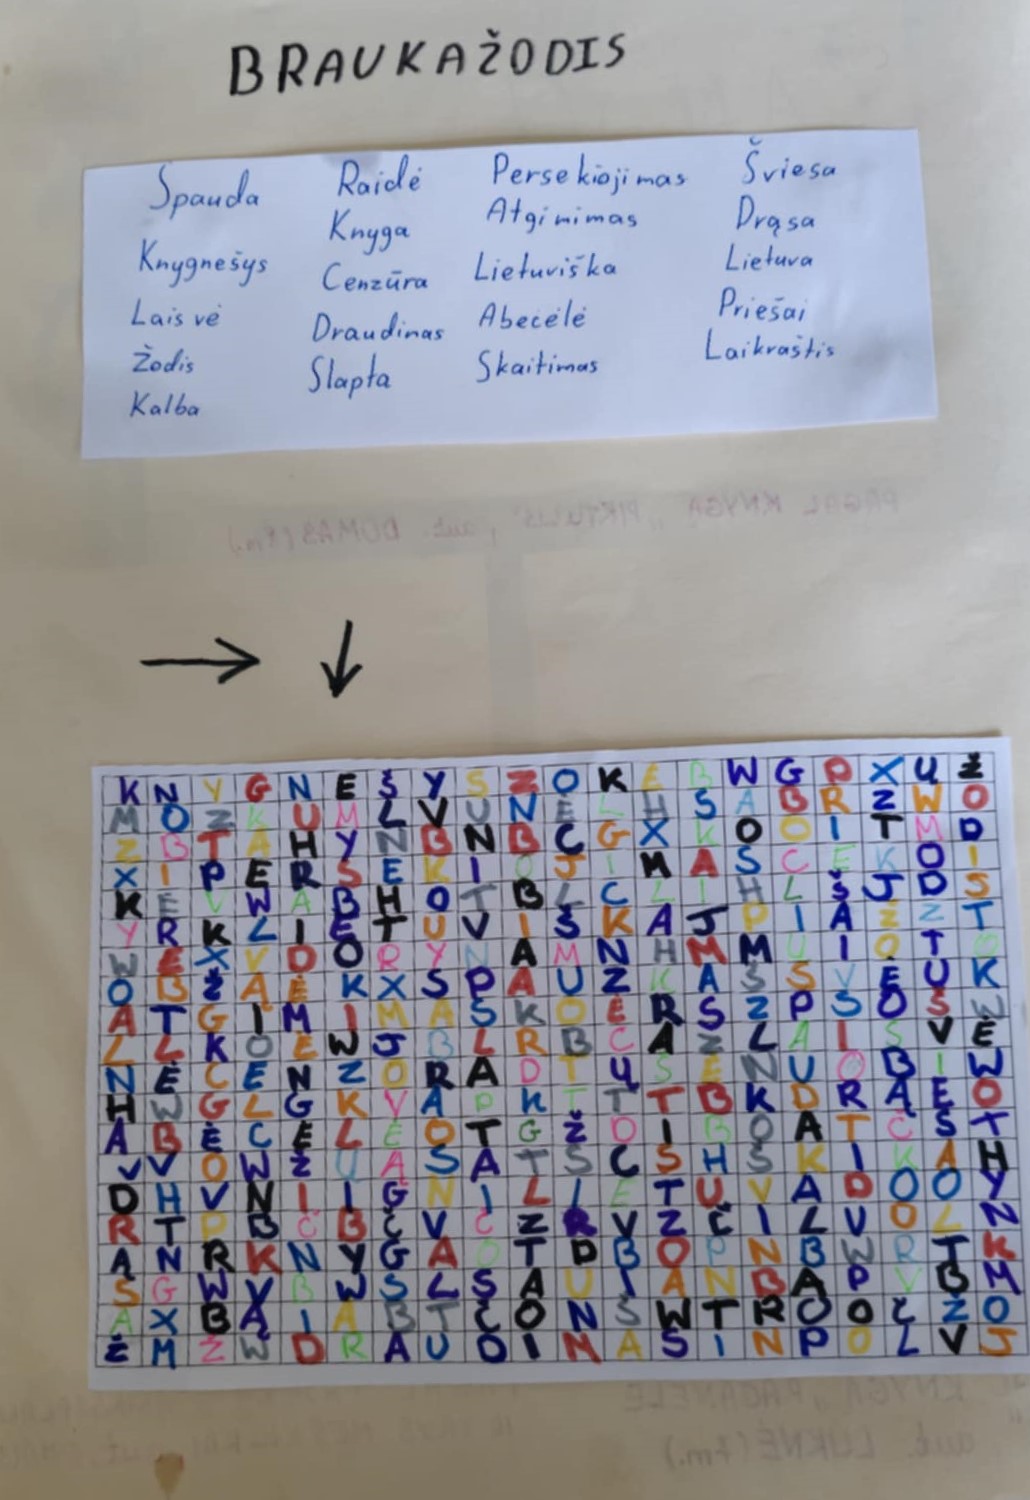 BRAUKAŽODIS
Spauda
Knygnešys
Laisvė
Žodis
Kalba
Raidė
Knyga
Cenzūra
Draudimas
Slapta
Persekiojimas
Atgimimas
Lietuviška
Abėcėlė
Skaitimas
Šviesa
Drąsa
Lietuva
Priešai
Laikraštis
K N Y G N E Š Y S Z O K E B W G P X U Ž
M O Z K U M L V U N E L H S A B R Z W O
Z B T A H Y N B N B C G X K O O I T M D
X I P E R S E K I O J I M A S C E K O I
K E V W A B H O T B L C L I H L Š J D S
Y R K L I E T U V I Š K A J P I A Z Z T
W E X V D O R Y N A M N H M M U I O T O
O B Ž A Ė K X S P A U Z K A S S V E U K
A T G I M I M A S K O E R S Z P S O Š W
L L K O E W J B L R B C A Z L A I S V Ė
N Ė C E N Z O R A D T U S E N U O B I W
H W G L G K V A P K T T T B K D R A E O
A B Ė C Ė L E O T G Ž D I B O A T C S T
V V O W Z U A S A T S C S H S K I K A H
D H V N I I G N I L I E T U V A D O O Y
R T P B C B Č V C Z R V Z Č I L V O L N
A N R K N Y G A O T D B O P N B W R T K
S G W V B W S L S A U I A N B A P V B M
A X B A I A B T Č O N S W T R O O Č Z O
Ž M Z W D R A U D I M A S I N P O L V J